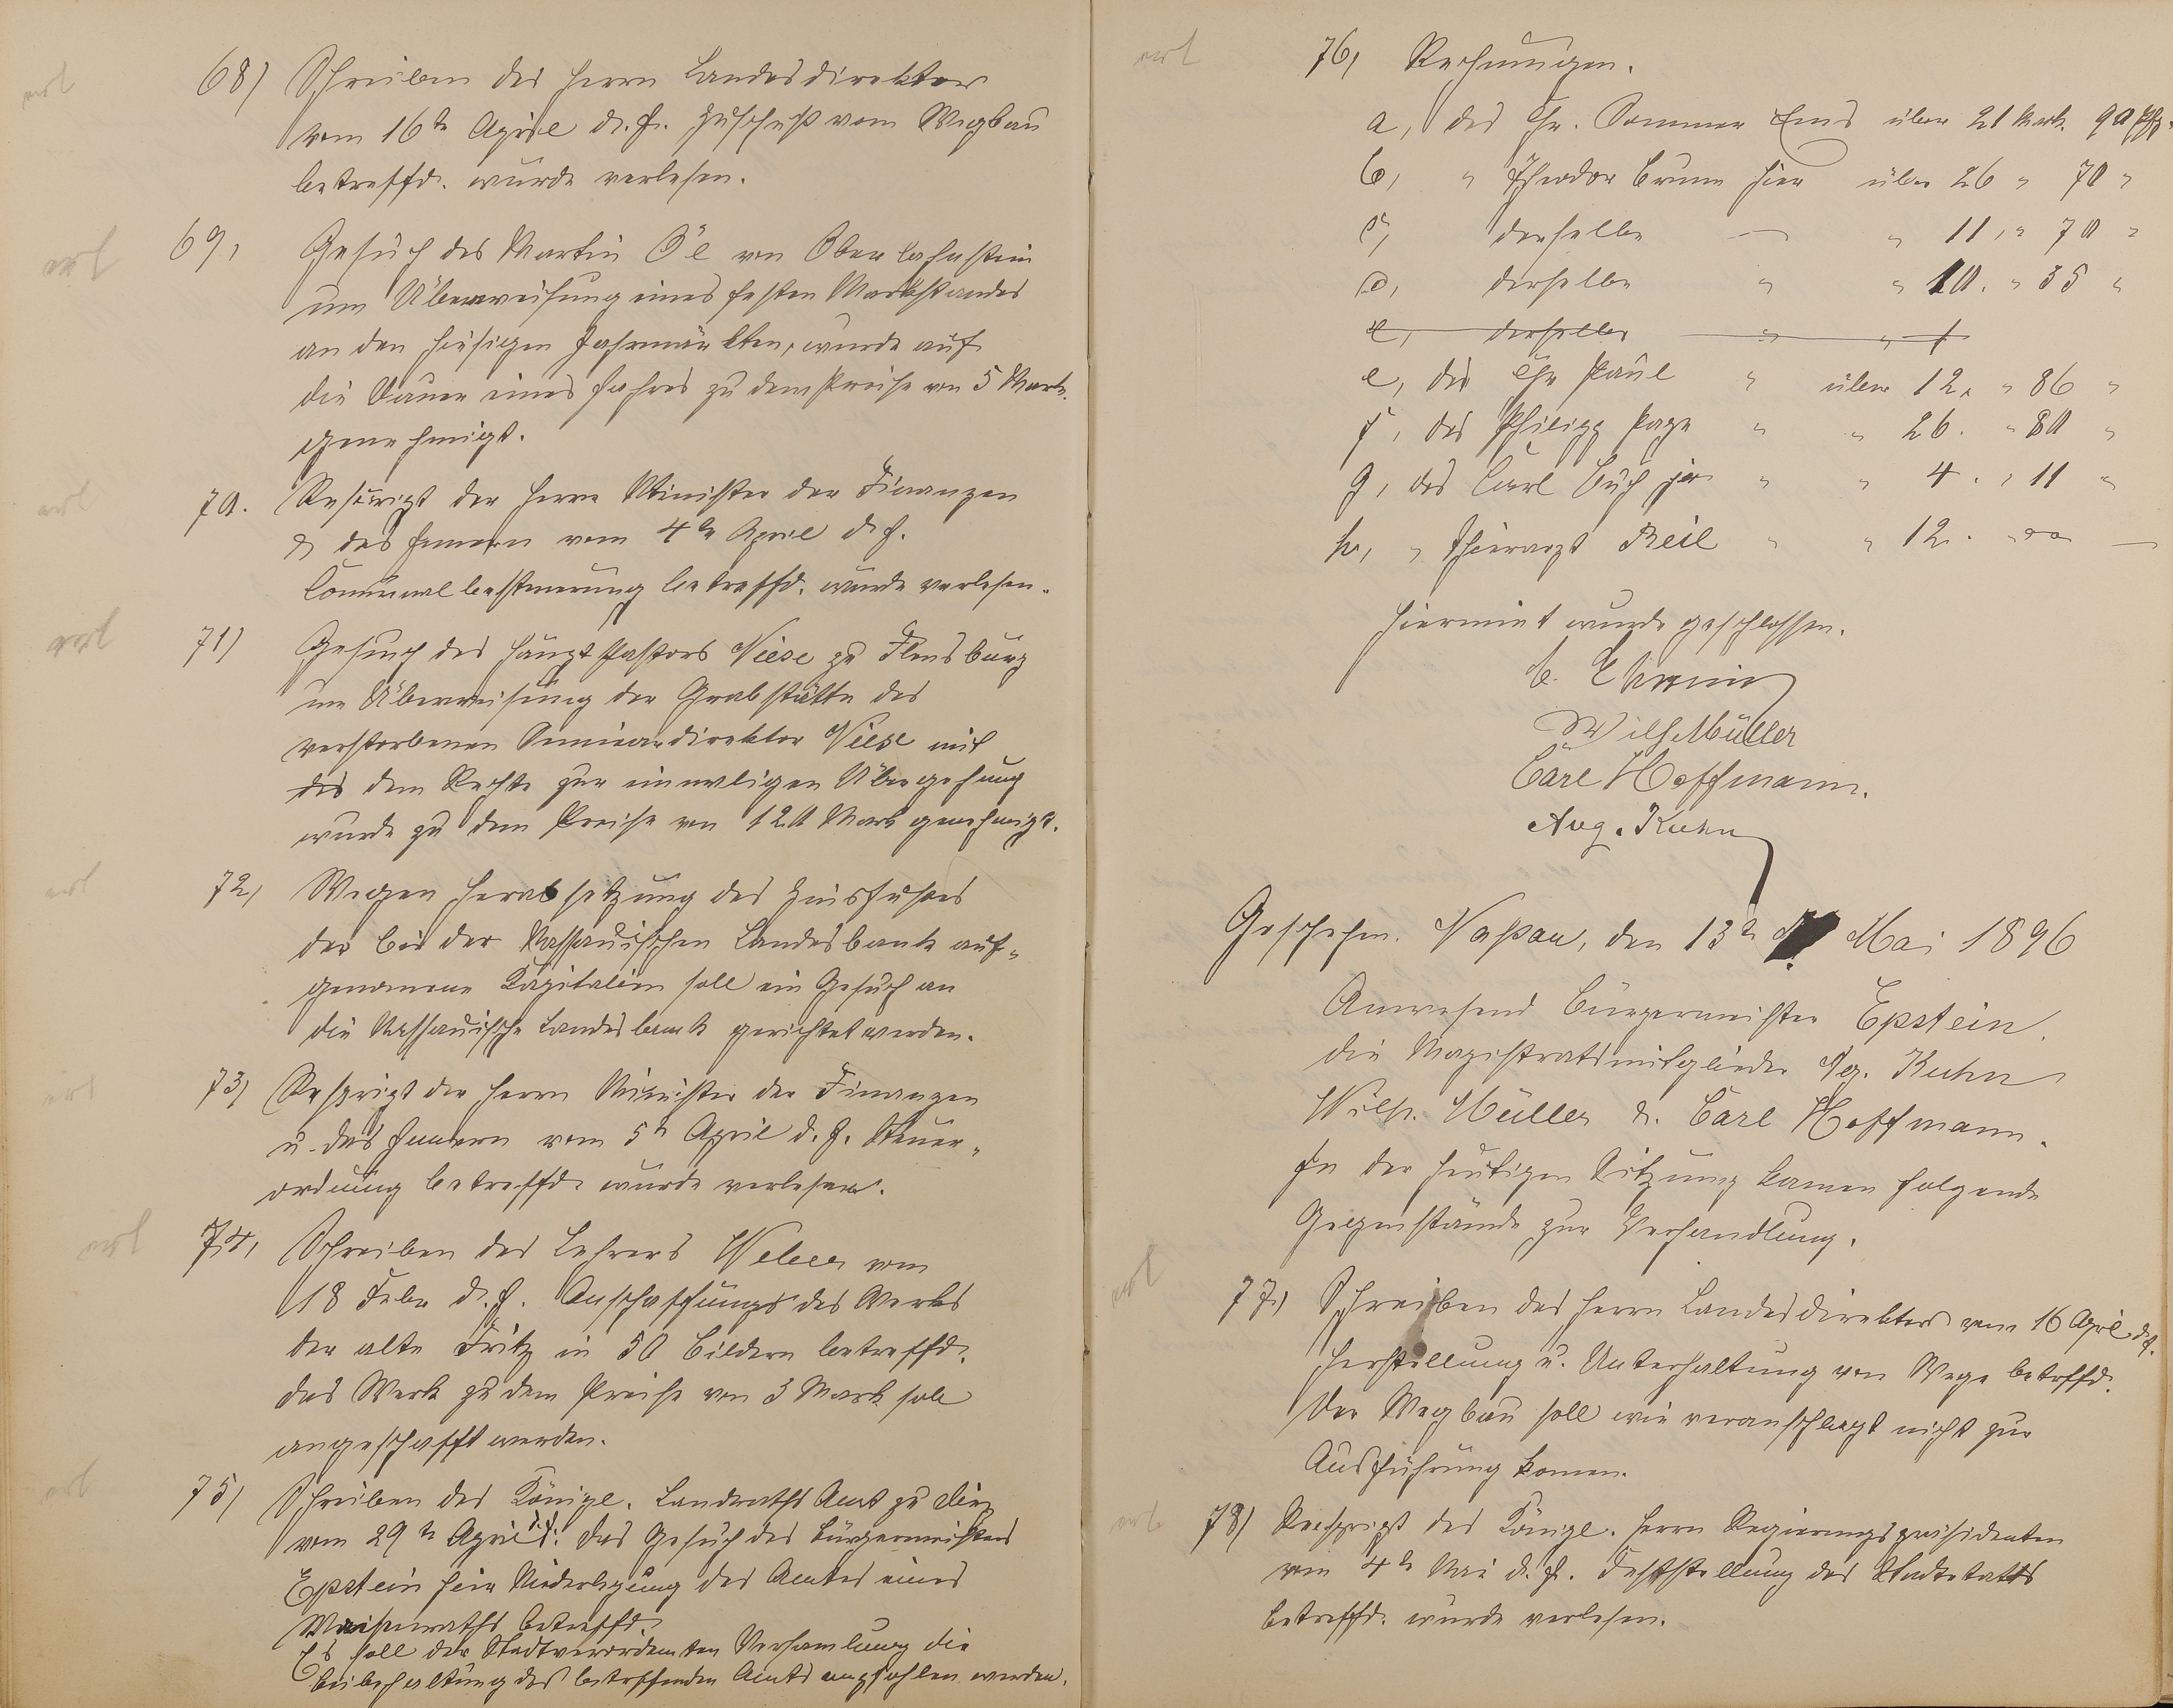 erl
68) Schreiben des Herrn Landesdirektors
vom 16ten April d. J. Zuschuß vom Wegbau
betreffd. wurde verlesen.
erl
69, Gesuch des Martin Öl von Oberlahnstein
um Überweisung eines festen Marktstandes
an den hiesigen Jahrmärkten, wurde auf
die Dauer eines Jahres zu dem Preise von 5 Mark.
genehmigt.
erl
70. Rescript der Herrn Minister der Finanzen
& des Innern vom 4ten April d. J.
Communalbesteuerung betreffd. wurde verlesen.
erl
71) Gesuch des Hauptpastors Niese zu Flensburg
um Überweisung der Grabstätte des
verstorbenen Seminardirektor Niese mit
des dem Rechte zur einmaligen Übergehung
wurde zu dem Preise von 120 Mark genehmigt.
erl
72, Wegen Herabsetzung des Zinsfußes
der bei der Nassauischen Landesbank auf-
genomene Kapitalien soll ein Gesuch an
die Nassauische Landesbank gerichtet werden.
erl
73) Rescript der Herrn Minister der Finanzen
u. des Innern vom 5ten April d. J. Steuer-
ordnung betreffd. wurde verlesen.
erl
74, Schreiben des Lehrers Weber vom
18 Febr d. J. Anschaffungs des Werks
der alte Fritz in 50 Bildern betreffd.
das Werk zu dem Preise von 3 Mark soll
angeschafft werden.
erl
75) Schreiben des Königl. Landraths Amt zu Diez
vom 29ten April d. J. das Gesuch des Bürgermeisters
Epstein hier Niederlegung des Amtes eines
Waisenraths betreffd.
Es soll der Stadtverordneten Versamlung die
Beibehaltung des betreffenden Amts empfohlen werden.
erl
76, Rechnungen.
a, des Chr. Sommer Ems über 21 Mark. 90 Pfg.
b, " Theodor Brum hier über 26 " 70 "
c, derselbe — " 11, " 70 "
d, derselbe " " 10. " 35 "
e, derselbe " " 1
e, des Chr Paul " über 12. " 86 "
f, des Philipp Page " " 26. " 80 "
g, des Carl Buch jr " " 4. " 11 "
h, " Thierarzt Reil " " 12. " 00 —
Hiermit wurde geschlossen.
Wilh Müller
Carl Hoffmann.
Aug. Kuhn
Geschehen. Naßau, den 13ten Mai 1896
Anwesend Bürgermeister Epstein.
die Magistratsmitglieder Ag. Kuhn
Wilh. Müller & Carl Hoffmann.
In der heutigen Sitzung kamen folgende
Gegenstände zur Verhandlung.
erl
77, Schreiben des Herrn Landesdirektors vom 16 April d. J.
Herstellung u. Unterhaltung von Wege betrffd.
Der Wegbau soll wie veranschlagt nicht zur
Ausführung komen.
erl
78) Rescript des Königl. Herrn Regierungspräsidenten
vom 4ten Mai d. J. Feststellung des Stadtetatts
betreffd. wurde verlesen.